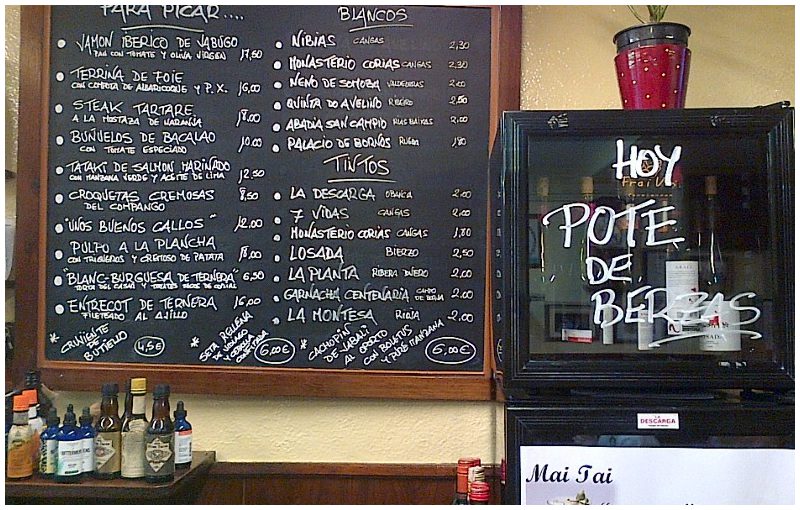 PARA PICAR....
JAMÓN IBERICO DE JABUGO
PAN CON TOMATE Y OLIVA VIRGEN 17,50
TERRINA DE FOIE
CON COMPOTA DE ALBARICOQUE Y P.X. 16,00
STEAK TARTARE
A LA MOSTAZA DE NARANJA 18.00
BUÑUELOS DE BACALAO
CON TOMATE ESPECIADO 10.00
TATAKI DE SALMON MARINADO
CON MANZANA VERDE Y ACEITE DE LIMA 12.50
CROQUETAS CREMOSAS
DEL COMPANGO 8,50
"UNOS BUENOS CALLOS" 12.00
PULPO A LA PLANCHA
CON TRIGUEROS Y CREMOSO DE PATATA 18.00
"BLANC-BURGUESA DE TERNERA" 6,50
TORTA DEL CASAR Y TOMATES SECOS
ENTRECOT DE TERNERA 16,00
FILETEADO AL AJILLO
* CRUJIENTE DE BUTIELLO 4,5€
* SETA
6,00€
* CACHOPIN DE JABALI AL OPORTO CON BOLETUS Y PURE MANZANA
6,00€
BLANCOS
NIBIAS CANGAS 2,30
MONASTERIO CORIAS CANGAS 2,30
NENO DE SOMOBA VALDEORRAS 2.00
QUINTA DO AVELINO RIBEIRO 2,50
ABADIA SAN CAMPIO RIAS BAIXAS 2.00
PALACIO DE BORNOS RUEDA 1,80
TINTOS
LA DESCARGA 2,00
7 VIDAS CANGAS 2.00
MONASTERIO CORIAS CANGAS 1,80
LOSADA BIERZO 2,50
LA PLANTA RIBERA DUERO 2.00
GARNACHA CENTENARIA CAMPO DE BORJA 2.00
LA MONTESA RIOJA 2,00
HOY
POTE
DE
BERZAS
LA DESCARGA
Mai Tai